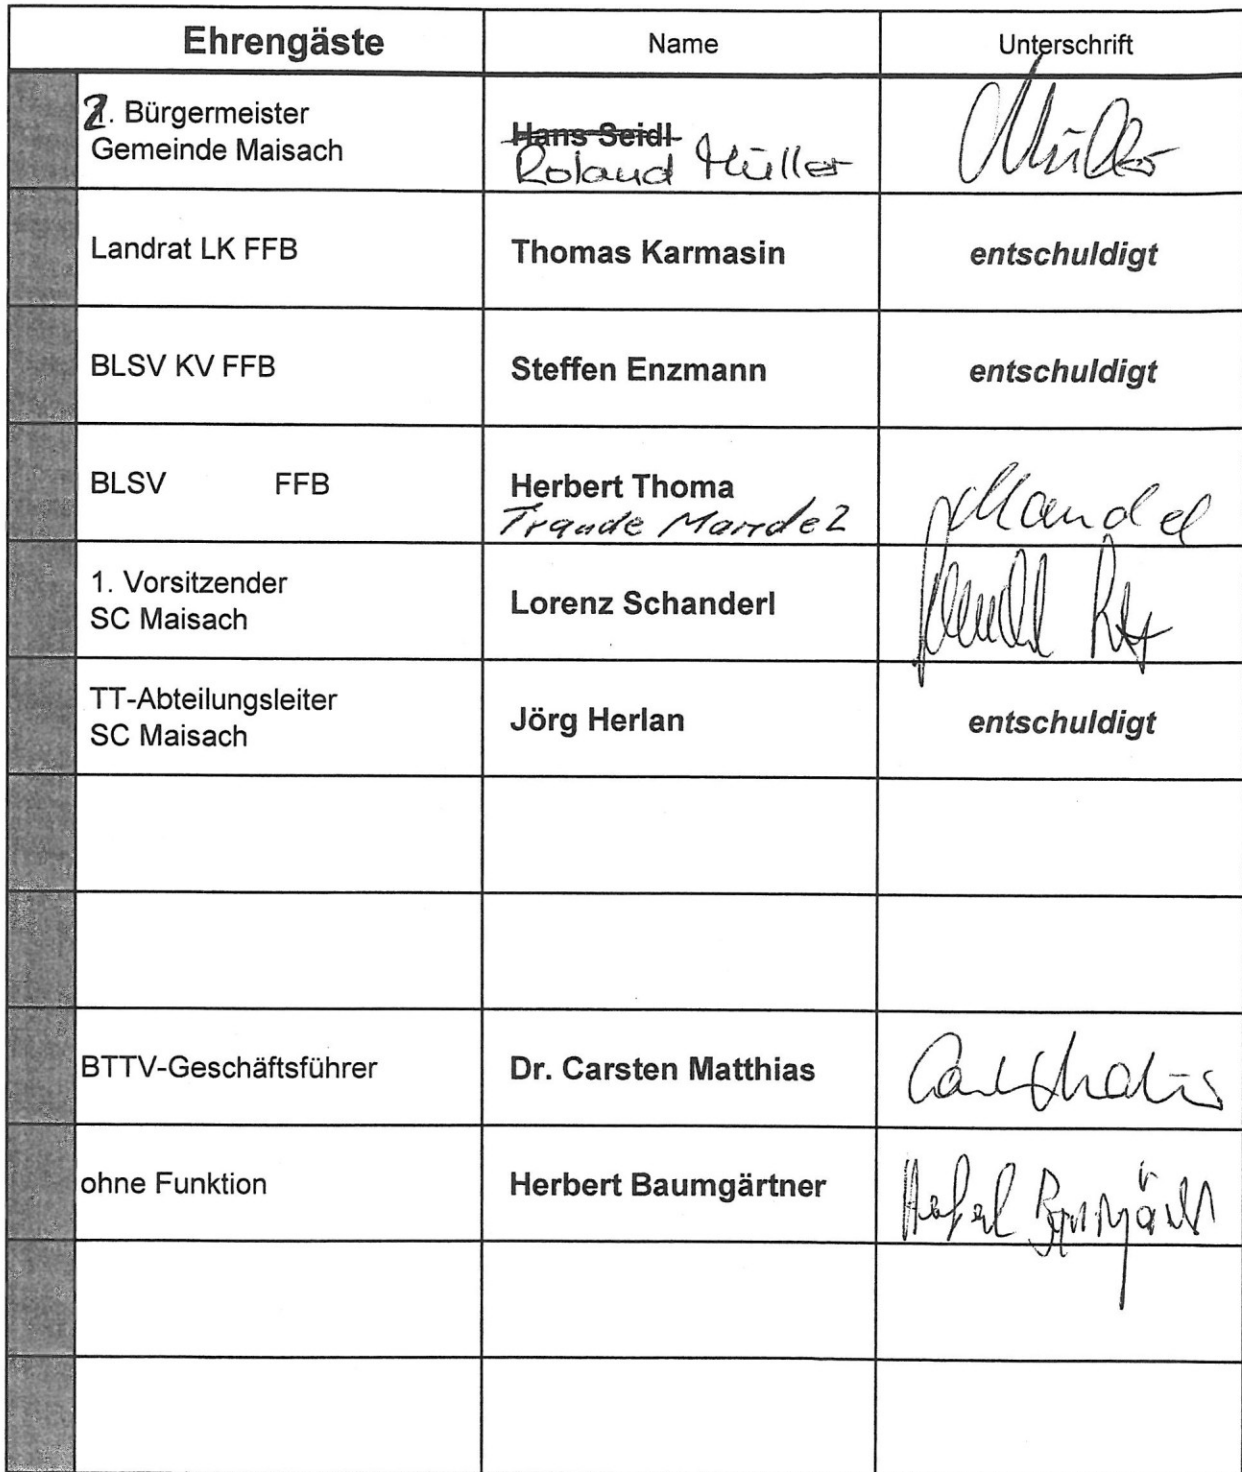 Ehrengäste Name Unterschrift
2. Bürgermeister
Gemeinde Maisach
Hans Seidl
Roland Müller
Müller
Landrat LK FFB Thomas Karmasin entschuldigt
BLSV KV FFB Steffen Enzmann entschuldigt
BLSV FFB Herbert Thoma
Traude Mandel
Mandel
1. Vorsitzender
SC Maisach
Lorenz Schanderl
TT-Abteilungsleiter
SC Maisach
Jörg Herlan entschuldigt
BTTV-Geschäftsführer Dr. Carsten Matthias
ohne Funktion Herbert Baumgärtner